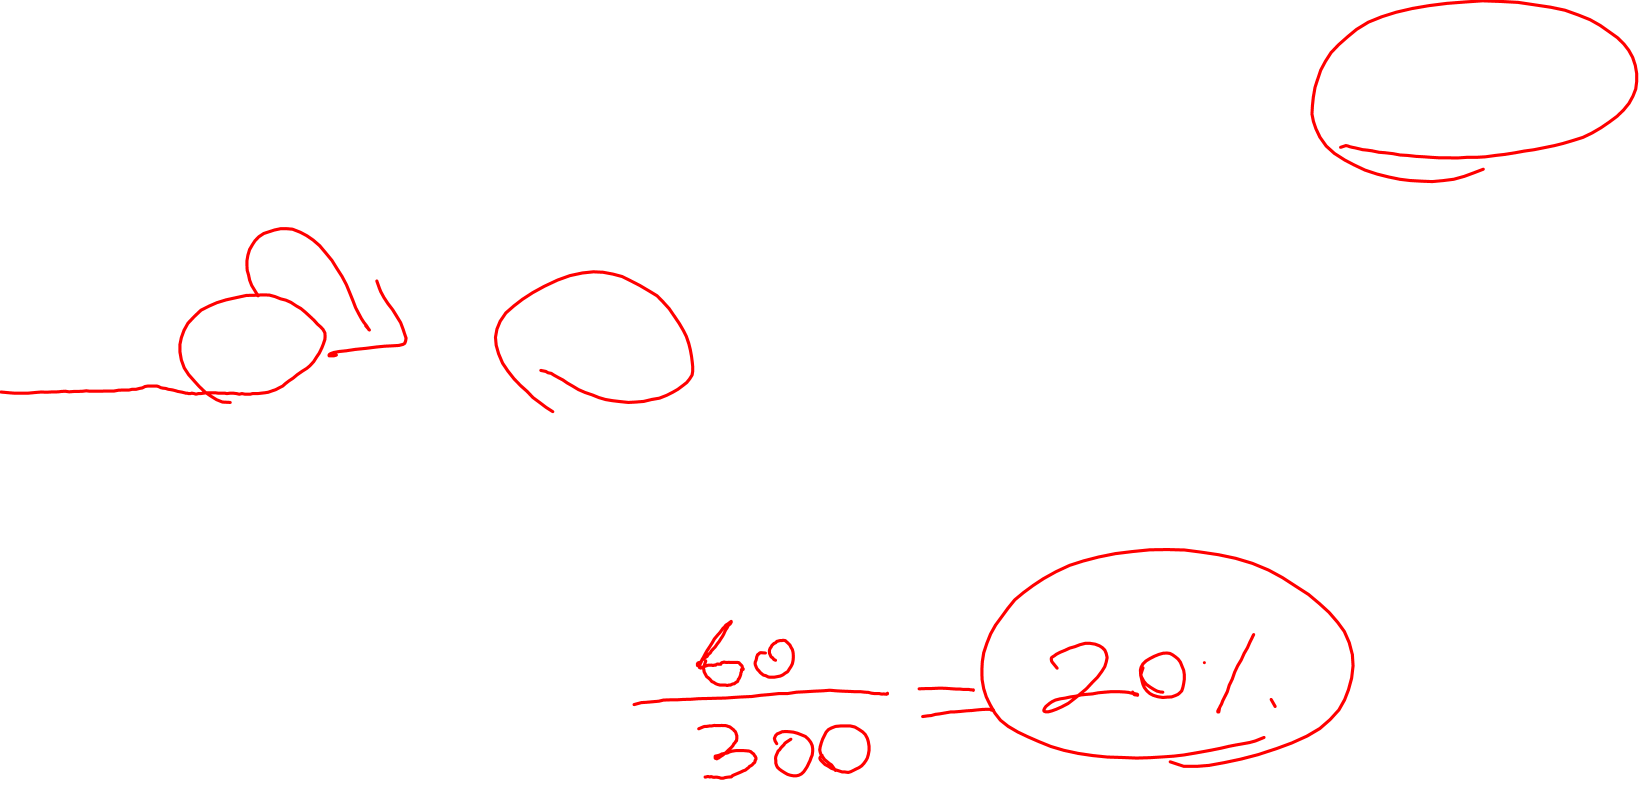 60/300 = 20%